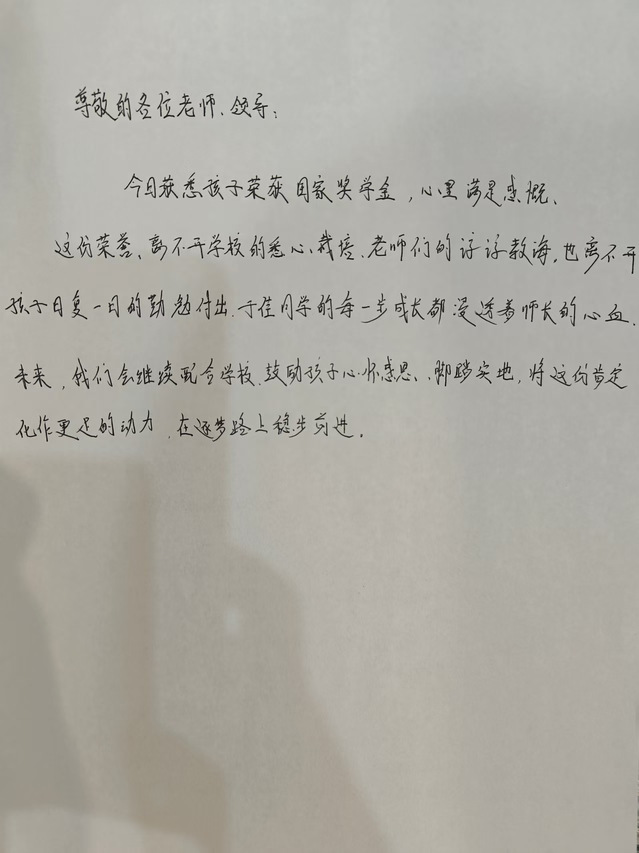 尊敬的各位老师、领导:
今日获悉孩子荣获国家奖学金,心里满是感慨、
这份荣誉、离不开学校的悉心栽培、老师们的谆谆教诲,也离不开
孩子日复一日的勤勉付出.于佳同学的每一步成长都浸透着师长的心血、
未来,我们会继续配合学校.鼓励孩子心怀感恩、脚踏实地,将这份肯定
化作更足的动力,在逐梦路上稳步前进。